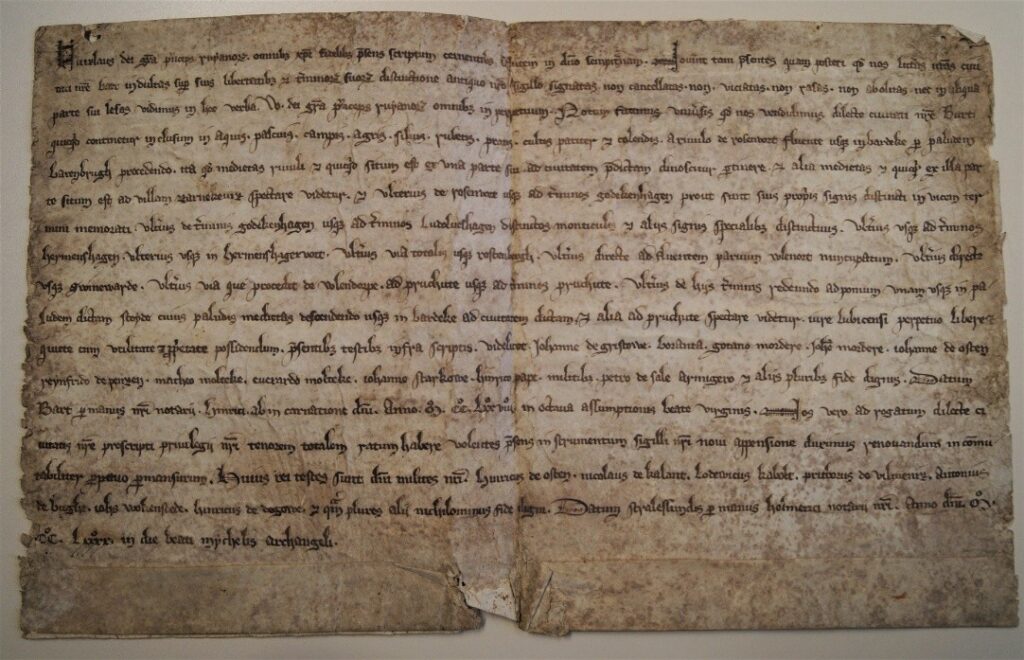 dei gra princeps omnibus xpi fidelibus presens scriptum cernentibus in dno sempiternam. Novint tam presentes quam posteri qd nos litas
tati nre bart indultas sup suis libertatibus et terminorum suorum distinctione antiquo nro sigillo signatas non cancellatas. non. viciatas. non rasas. non abolitas nec in aliqua
parte sui lesas vidimus in hec verba. W. dei gra princeps ruyanorum omnibus in perpetuum. Notum facimus universis qd nos vendidimus dilecte civitati nre Bart
quicqd continetur inclusum in aquis. pascuis. campis. agris. silvis. rubetis. pratis. cultis pariter et colendis. a rivulo de rosenvot fluente usqz in bardeke per paludem
barenbrugh procedendo. ita qd medietas rivuli et quicqd situm est ex una parte sui ad civitatem predictam dinoscitur pertinere. et alia medietas et quicqd ex illa par
te situm est ad villam spectare videtur. et ulterius de rosenvot usqz ad terminos godekenhagen prout sunt suis propriis signis distincti in vicem ter
mini memorati. ulterius de terminis godekenhagen usqz ad terminos Ludolveshagen distinctos monticulis et aliis signis specialibz distinctivis. ulterius usqz ad terminos
hermenshagen. ulterius usqz in hermenshagervort. ulterius via totalis usqz rostenbergh. ulterius directe ad fluentem parvum wlenort nuncupatum. ulterius directe
usqz swinewarde. ulterius via que procedit de wlendorpe. ad pruchute usqz ad terminos pruchute. ulterius de hijs terminis redeundo ad ponium unam usqz in pa
ludem dictam cuius paludis medietas descendendo usqz in bardeke ad civitatem dictam. et alia ad pruchute spectare videtur. iure lubicensi perpetuo libere
quiete cum utilitate et proprietate possidendum. presentibz testibz infra scriptis. videlicet. Johanne de gristowe. boranta. gotano mordere. Johe mordere. iohanne de osten
reynfrido de penzen. matheo molteke. everardo molteke. iohanne starkowe. hinrico pape. militibz. petro de sale armigero et aliis pluribz fide dignis. Datum
Bart per manus nri notarii. hinrici. ab in carnatione dni. Anno. M. CC. Lxx in octava assumptionis beate virginis. Nos vero ad rogatum dilecte ci
vitatis nre prescripti privilegii nri tenorem totalem ratum habere volentes presens in strumentum sigilli nri novi appensione duximus renovandum in comu
tabiliter perpetuo permansurum. Huius rei testes sunt dni milites nri. hinricus de osten. nicolaus de kalant. Lodewicus kabolt. priborus de vilmenz. antonius
de bughe. iohs wokensede. hinricus de et quam plures alii nichilominus fide digni. Datum stralessundis per manus holmerici notarii nri. Anno dni. M.
CC. Lxxx. in die beati mychelis archangeli.